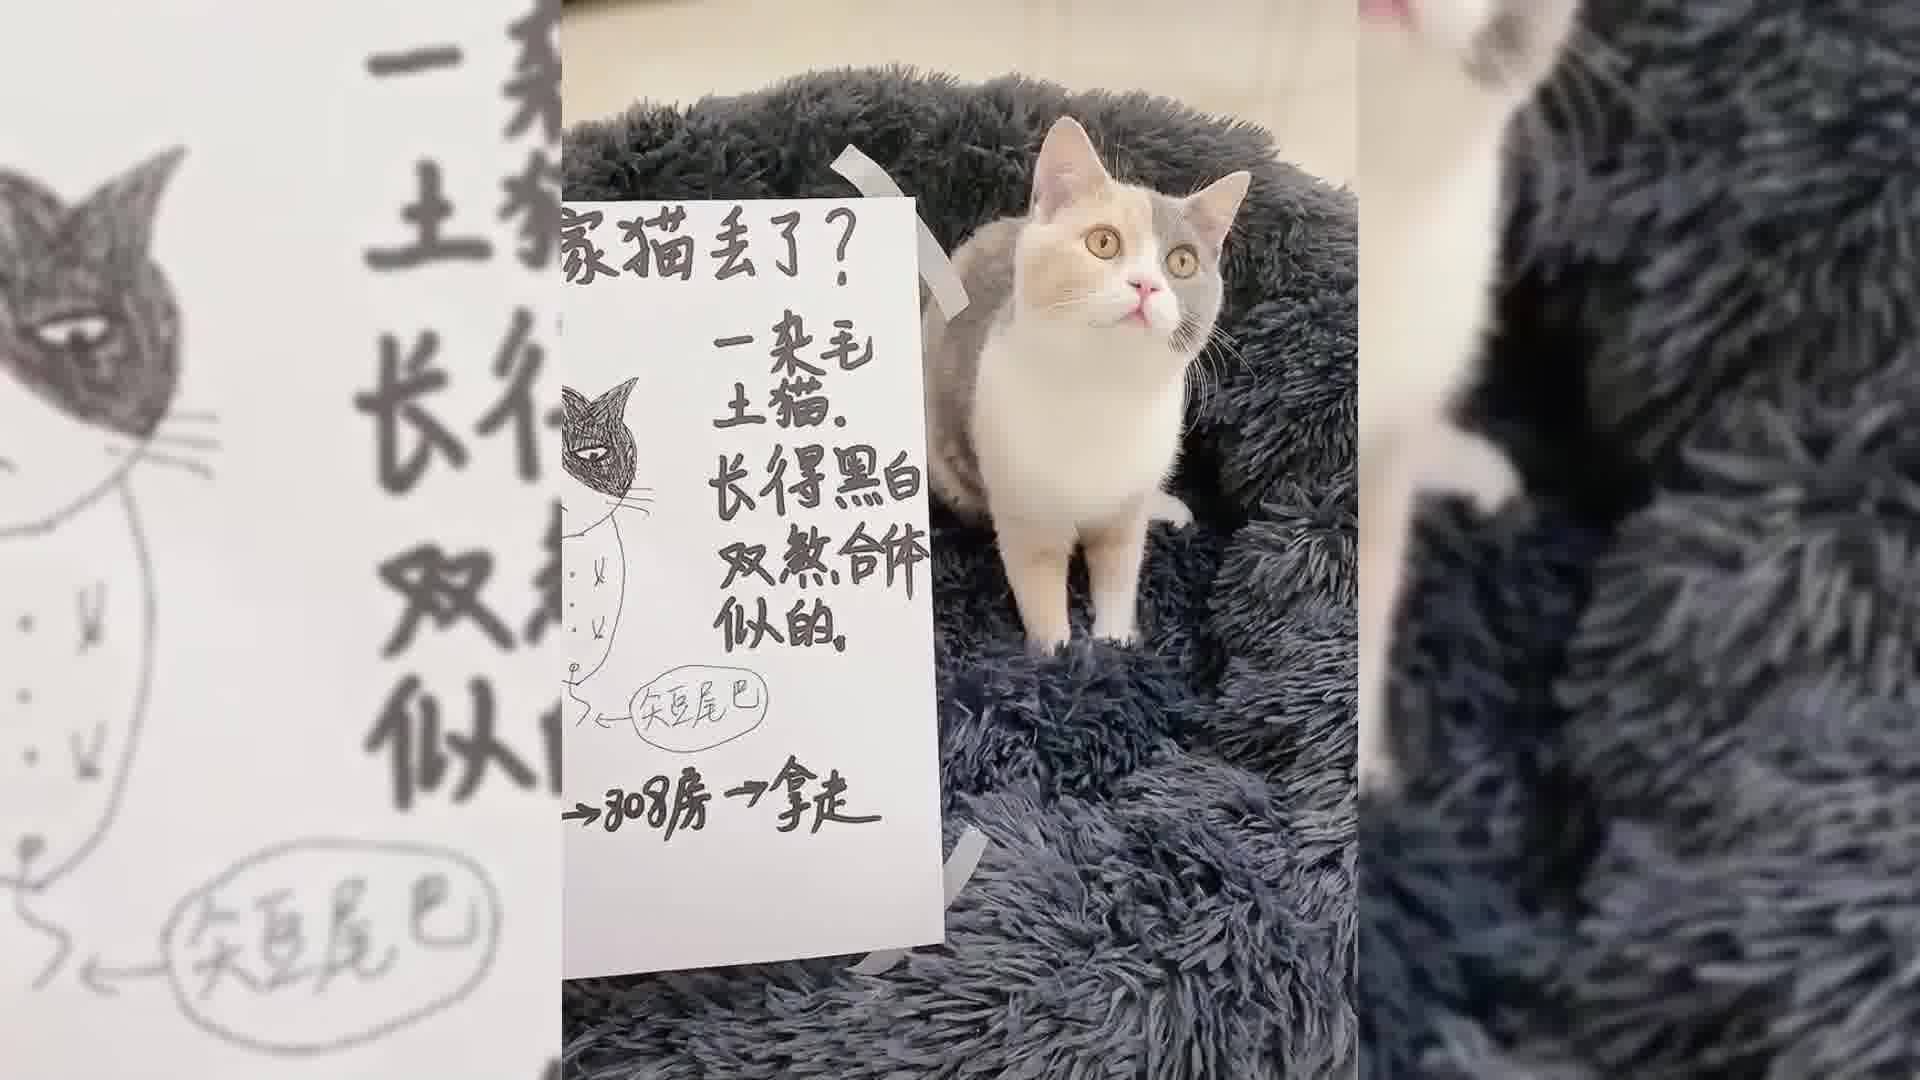 家猫丢了？
一杂毛
土猫.
长得黑白
双煞合体
似的。
尖豆尾巴
→308房→拿走